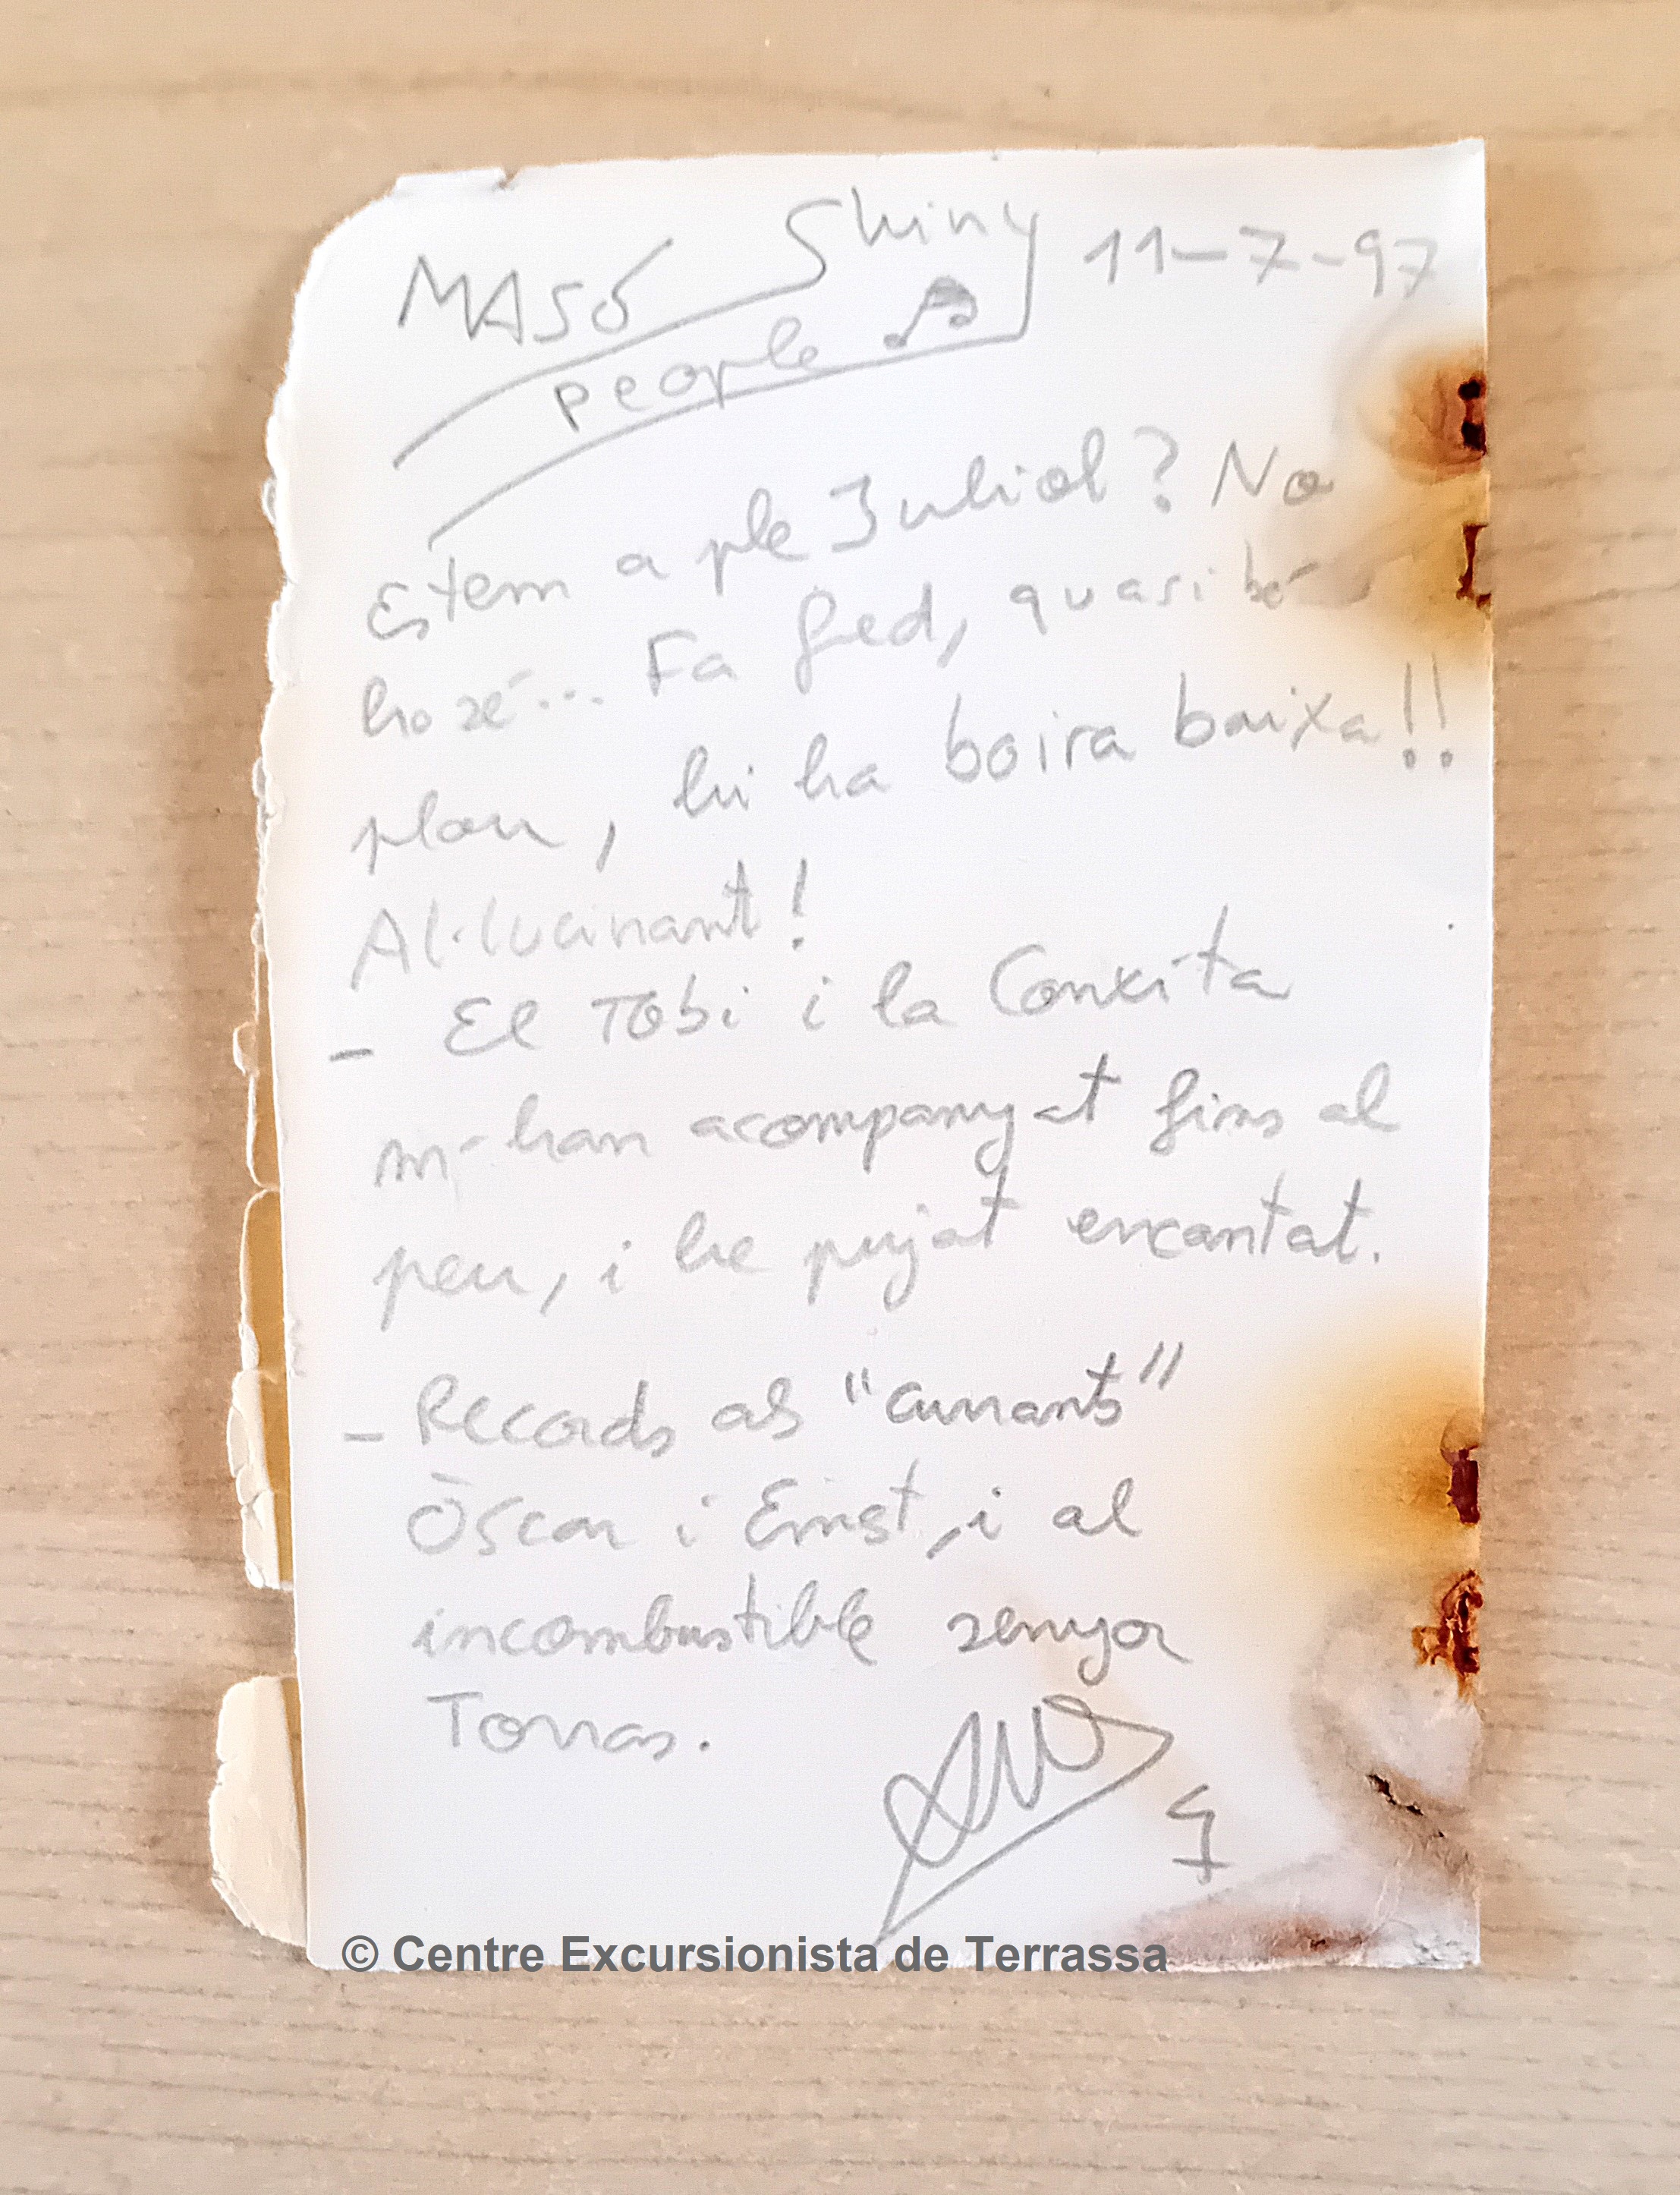 MASÓ Shiny 11-7-97
people
Estem a ple Juliol? No
ho sé... Fa fred, quasi bé
plou, hi ha boira baixa!!
Al·lucinant!
- El TOBi i la Conxita
m'han acompanyat fins al
peu, i he pujat encantat.
- Records als "currants"
Òscar i Ernst, i al
incombustible senyor
Torras.
© Centre Excursionista de Terrassa